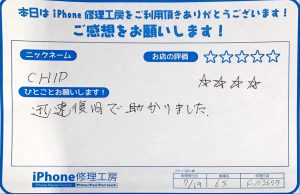 本日はiPhone修理工房をご利用頂きありがとうございます!
ご感想をお願いします!
ニックネーム
お店の評価 ☆☆☆☆☆
CHIP
☆☆☆☆
ひとことお願いします!
迅速復旧で助かりました.
iPhone修理工房
7/19 6S